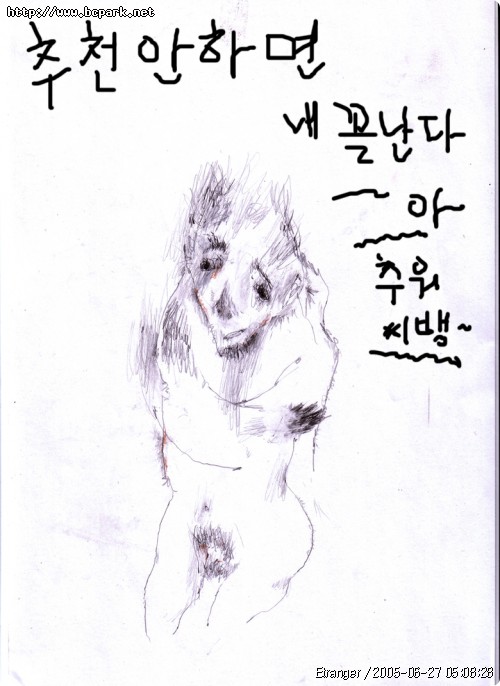 http://www.bcpark.net
추천안하면
내 꼴난다
아~
추워
씨뱀~
Etranger / 2005-06-27 05:08:28